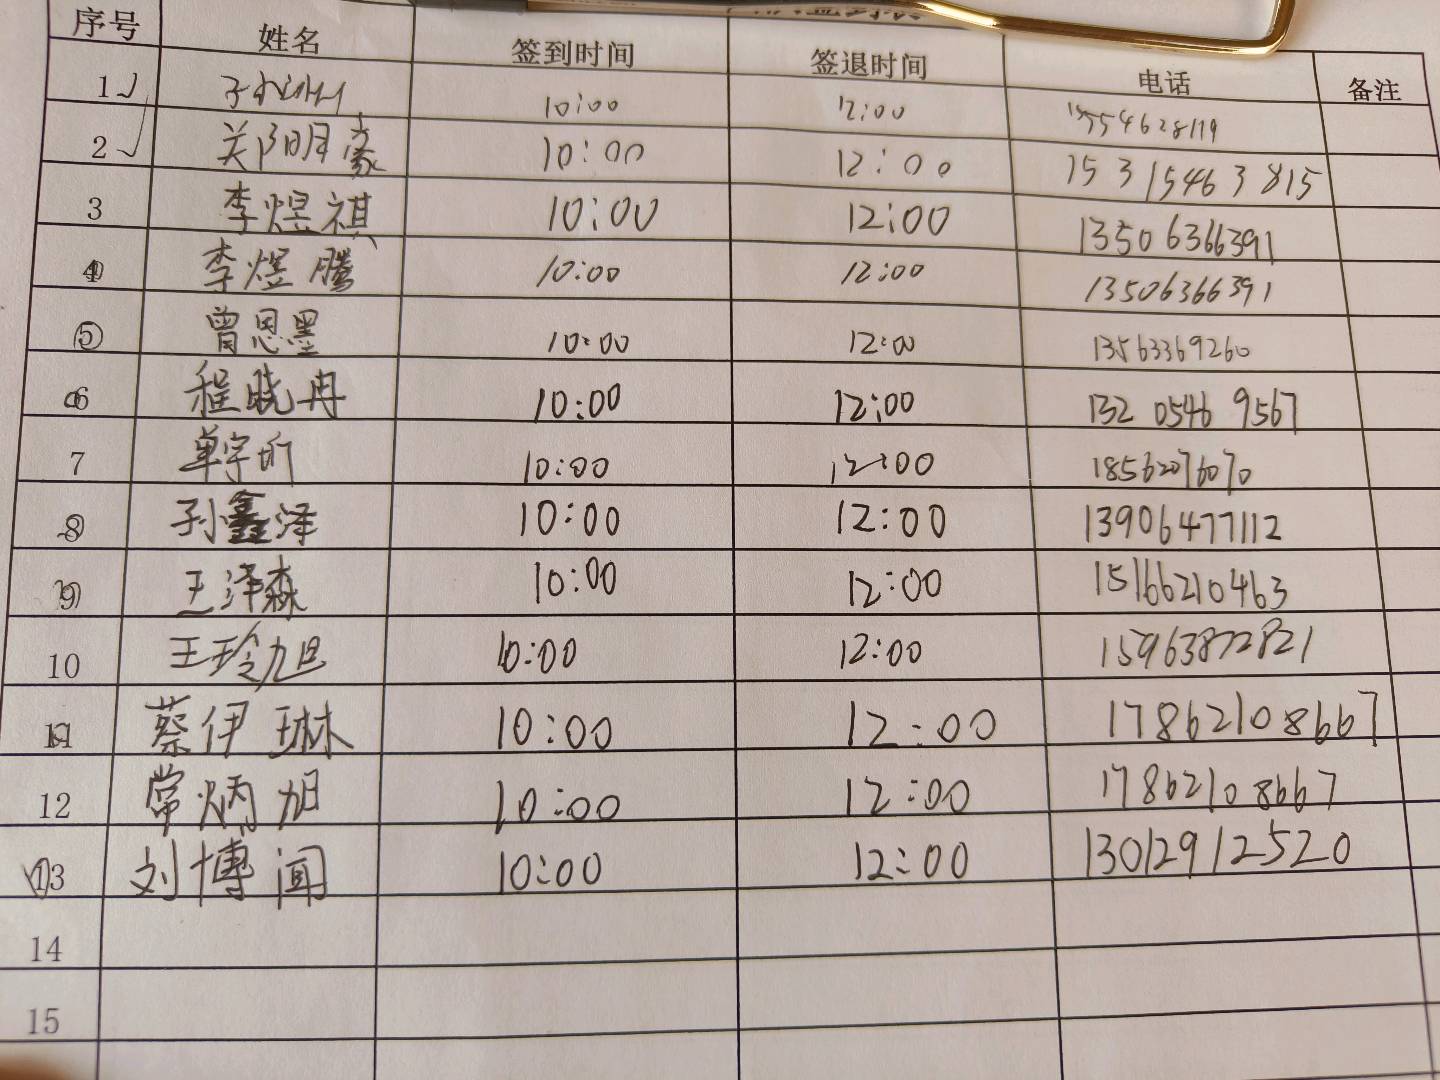 序号 姓名 签到时间 签退时间 电话 备注
1 10:00 12:00
2 关阴月豪 10:00 12:00 15315463815
3 李煜祺 10:00 12:00 13506366391
4 李煜腾 10:00 12:00 13506366391
5 曾思墨 10:00 12:00 13563369260
6 程晓冉 10:00 12:00 132 0546 9567
7 单宇昕 10:00 12:00 18562076070
8 孙鑫泽 10:00 12:00 13906477112
9 王泽森 10:00 12:00 15166210463
10 王玲旭 10:00 12:00 15963872821
11 蔡伊琳 10:00 12:00 17862108667
12 常炳旭 10:00 12:00 17862108667
13 刘博闻 10:00 12:00 13012912520
14
15